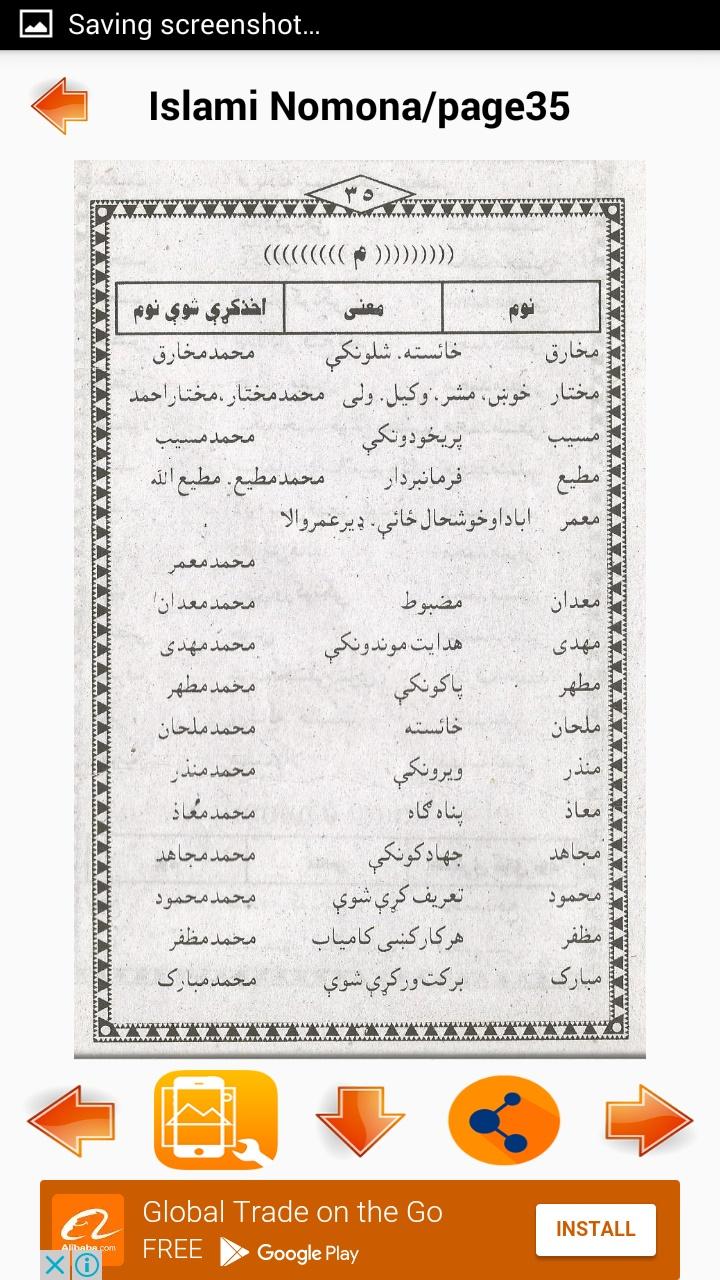 Saving screenshot...
Islami Nomona/page35
۳۵
((((((((( م )))))))))
نوم معنی اخذکړې شوې نوم
مخارق خائسته. شلونکې محمدمخارق
مختار خوښ، مشر، وکیل. ولی محمدمختار،مختاراحمد
مسیب پریخودونکې محمدمسیب
مطیع فرمانبردار محمدمطیع. مطیع الله
معمر اباداوخوشحال ځائې. ډیرعمروالا
محمدمعمر
معدان مضبوط محمدمعدان
مهدی هدایت موندونکې محمدمهدی
مطهر پاکونکې محمدمطهر
ملحان خائسته محمدملحان
منذر ویرونکې محمدمنذر
معاذ پناه ګاه محمدمعاذ
مجاهد جهادکونکې محمدمجاهد
محمود تعریف کړې شوې محمدمحمود
مظفر هرکارکښی کامیاب محمدمظفر
مبارک برکت ورکړې شوې محمدمبارک
Global Trade on the Go
FREE Google Play
INSTALL
Alibaba.com